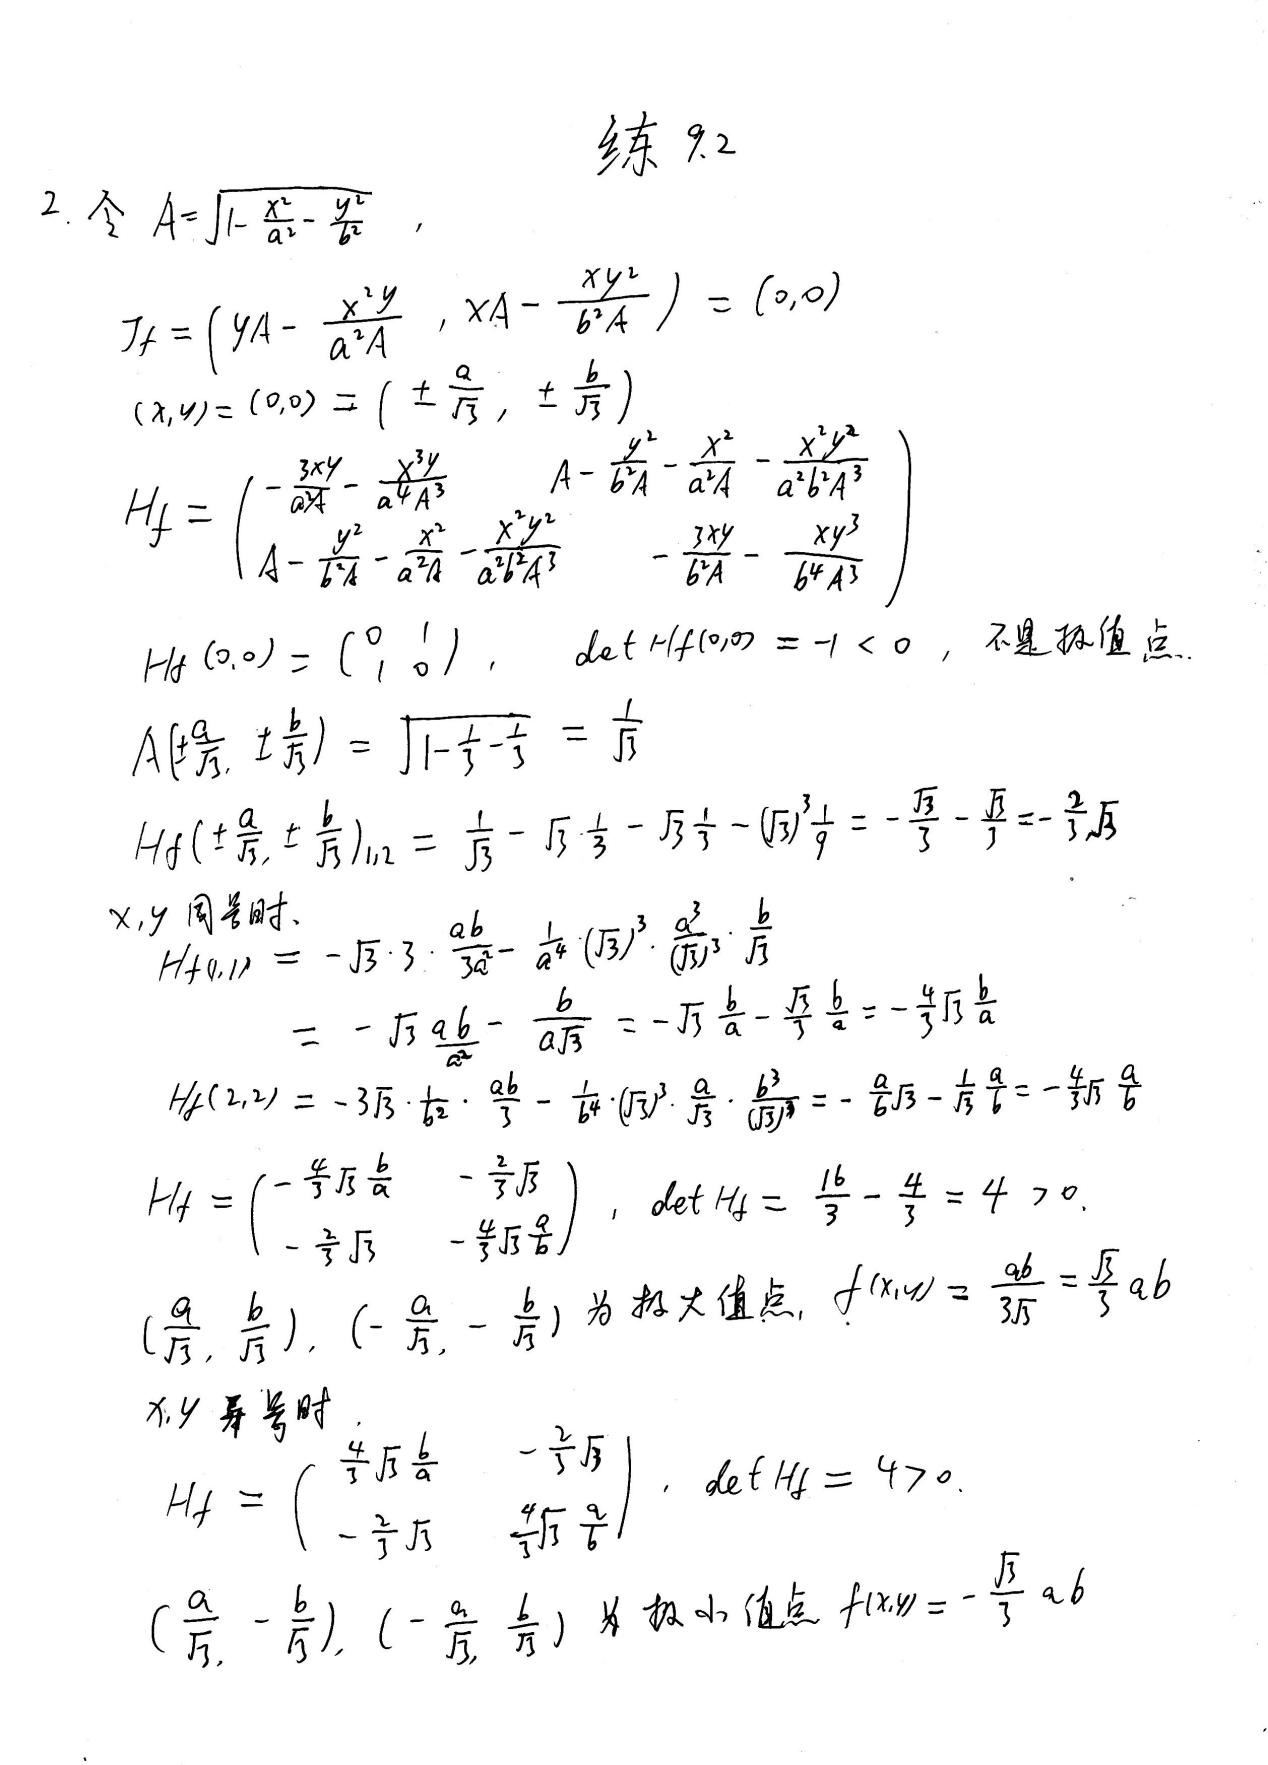 练 9.2
2. 令 A=√(1-x²/a²-y²/b²) ,
Jf = (yA - x²y/(a²A) , xA - xy²/(b²A)) = (0,0)
(x,y) = (0,0) 或 (±a/√3, ±b/√3)
Hf = ( -3xy/(a²A) - x³y/(a⁴A³)   A - y²/(b²A) - x²/(a²A) - x²y²/(a²b²A³)
A - y²/(b²A) - x²/(a²A) - x²y²/(a²b²A³)   -3xy/(b²A) - xy³/(b⁴A³) )
Hf(0,0) = (0 1
1 0) , det Hf(0,0) = -1 < 0 , 不是极值点.
A(±a/√3, ±b/√3) = √(1-1/3-1/3) = 1/√3
Hf(±a/√3, ±b/√3)1,2 = 1/√3 - √3·1/3 - √3 1/3 - (√3)³ 1/9 = -√3/3 - √3/3 = -2/3 √3
x,y 同号时、
Hf(1,1) = -√3·3·ab/(3a²) - 1/a⁴·(√3)³·a³/(√3)³·b/√3
= -√3 ab/a² - b/(a√3) = -√3 b/a - √3/3 b/a = -4/3 √3 b/a
Hf(2,2) = -3√3·1/b²·ab/3 - 1/b⁴·(√3)³·a/√3·b³/(√3)³ = -a/b √3 - 1/√3 a/b = -4/3 √3 a/b
Hf = ( -4/3 √3 b/a   -2/3 √3
-2/3 √3   -4/3 √3 a/b ) , det Hf = 16/3 - 4/3 = 4 > 0.
(a/√3, b/√3), (-a/√3, -b/√3) 为极大值点, f(x,y) = ab/(3√3) = √3/3 ab
x,y 异号时.
Hf = ( 4/3 √3 b/a   -2/3 √3
-2/3 √3   4/3 √3 a/b ) , det Hf = 4 > 0.
(a/√3, -b/√3), (-a/√3, b/√3) 为极小值点 f(x,y) = -√3/3 ab